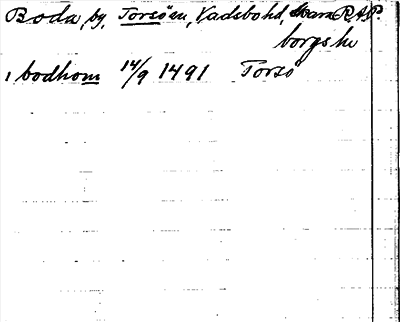 Boda, by, Torsö sn, Vadsbo hd, Skara R.A.P.
borgs län
i bodhom 14/9 1491 Torsö